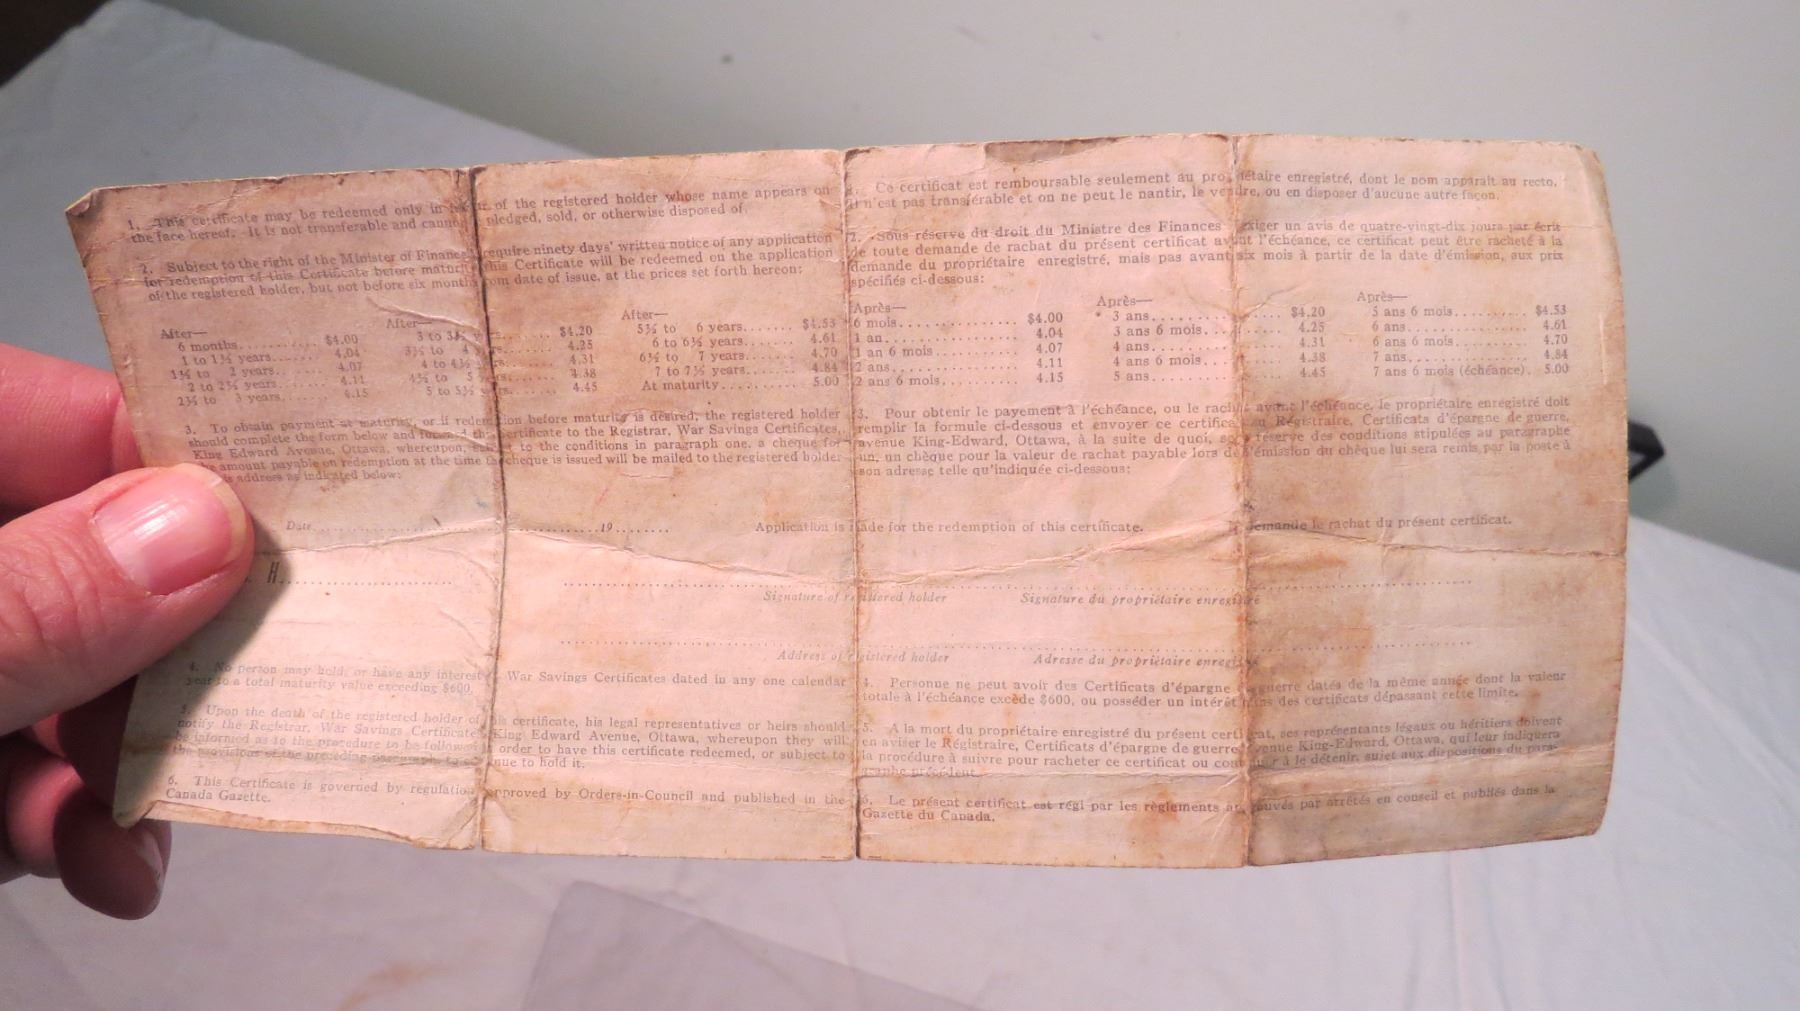 1. This certificate may be redeemed only in of the registered holder whose name appears on
the face hereof. It is not transferable and cannot pledged, sold, or otherwise disposed of.
2. Subject to the right of the Minister of Finance require ninety days' written notice of any application
for redemption of this Certificate before maturity this Certificate will be redeemed on the application
of the registered holder, but not before six months from date of issue, at the prices set forth hereon:
After— After— After—
6 months $4.00 3 to 3½ $4.20 5½ to 6 years $4.53
1 to 1½ years 4.04 3½ to 4 4.25 6 to 6½ years 4.61
1½ to 2 years 4.07 4 to 4½ 4.31 6½ to 7 years 4.70
2 to 2½ years 4.11 4½ to 5 4.38 7 to 7½ years 4.84
2½ to 3 years 4.15 5 to 5½ 4.45 At maturity 5.00
3. To obtain payment at maturity, or if redemption before maturity is desired, the registered holder
should complete the form below and forward this certificate to the Registrar, War Savings Certificates,
King Edward Avenue, Ottawa, whereupon, subject to the conditions in paragraph one, a cheque for
the amount payable on redemption at the time the cheque is issued will be mailed to the registered holder
address as indicated below:
1. Ce certificat est remboursable seulement au propriétaire enregistré, dont le nom apparaît au recto,
il n'est pas transférable et on ne peut le nantir, le vendre, ou en disposer d'aucune autre façon.
2. Sous réserve du droit du Ministre des Finances exiger un avis de quatre-vingt-dix jours par écrit
de toute demande de rachat du présent certificat avant l'échéance, ce certificat peut être racheté à la
demande du propriétaire enregistré, mais pas avant six mois à partir de la date d'émission, aux prix
spécifiés ci-dessous:
Après— Après— Après—
6 mois $4.00 3 ans $4.20 5 ans 6 mois $4.53
1 an 4.04 3 ans 6 mois 4.25 6 ans 4.61
1 an 6 mois 4.07 4 ans 4.31 6 ans 6 mois 4.70
2 ans 4.11 4 ans 6 mois 4.38 7 ans 4.84
2 ans 6 mois 4.15 5 ans 4.45 7 ans 6 mois (échéance) 5.00
3. Pour obtenir le payement à l'échéance, ou le rachat avant l'échéance, le propriétaire enregistré doit
remplir la formule ci-dessous et envoyer ce certificat au Régistraire, Certificats d'épargne de guerre,
avenue King-Edward, Ottawa, à la suite de quoi, sous réserve des conditions stipulées au paragraphe
un, un chèque pour la valeur de rachat payable lors de l'émission du chèque lui sera remis par la poste à
son adresse telle qu'indiquée ci-dessous:
Date 19 Application is made for the redemption of this certificate. Je demande le rachat du présent certificat.
H
Signature of registered holder Signature du propriétaire enregistré
Address of registered holder Adresse du propriétaire enregistré
4. No person may hold, or have any interest War Savings Certificates dated in any one calendar
year to a total maturity value exceeding $600.
5. Upon the death of the registered holder of this certificate, his legal representatives or heirs should
notify the Registrar, War Savings Certificates, King Edward Avenue, Ottawa, whereupon they will
be informed as to the procedure to be followed order to have this certificate redeemed, or subject to
the provisions of the preceding paragraph, to continue to hold it.
6. This Certificate is governed by regulations approved by Orders-in-Council and published in the
Canada Gazette.
4. Personne ne peut avoir des Certificats d'épargne guerre datés de la même année dont la valeur
totale à l'échéance excède $600, ou posséder un intérêt dans des certificats dépassant cette limite.
5. A la mort du propriétaire enregistré du présent certificat, ses représentants légaux ou héritiers doivent
en aviser le Régistraire, Certificats d'épargne de guerre, avenue King-Edward, Ottawa, qui leur indiquera
la procédure à suivre pour racheter ce certificat ou continuer à le détenir, sujet aux dispositions du para-
graphe précédent.
6. Le présent certificat est régi par les règlements approuvés par arrêtés en conseil et publiés dans la
Gazette du Canada.